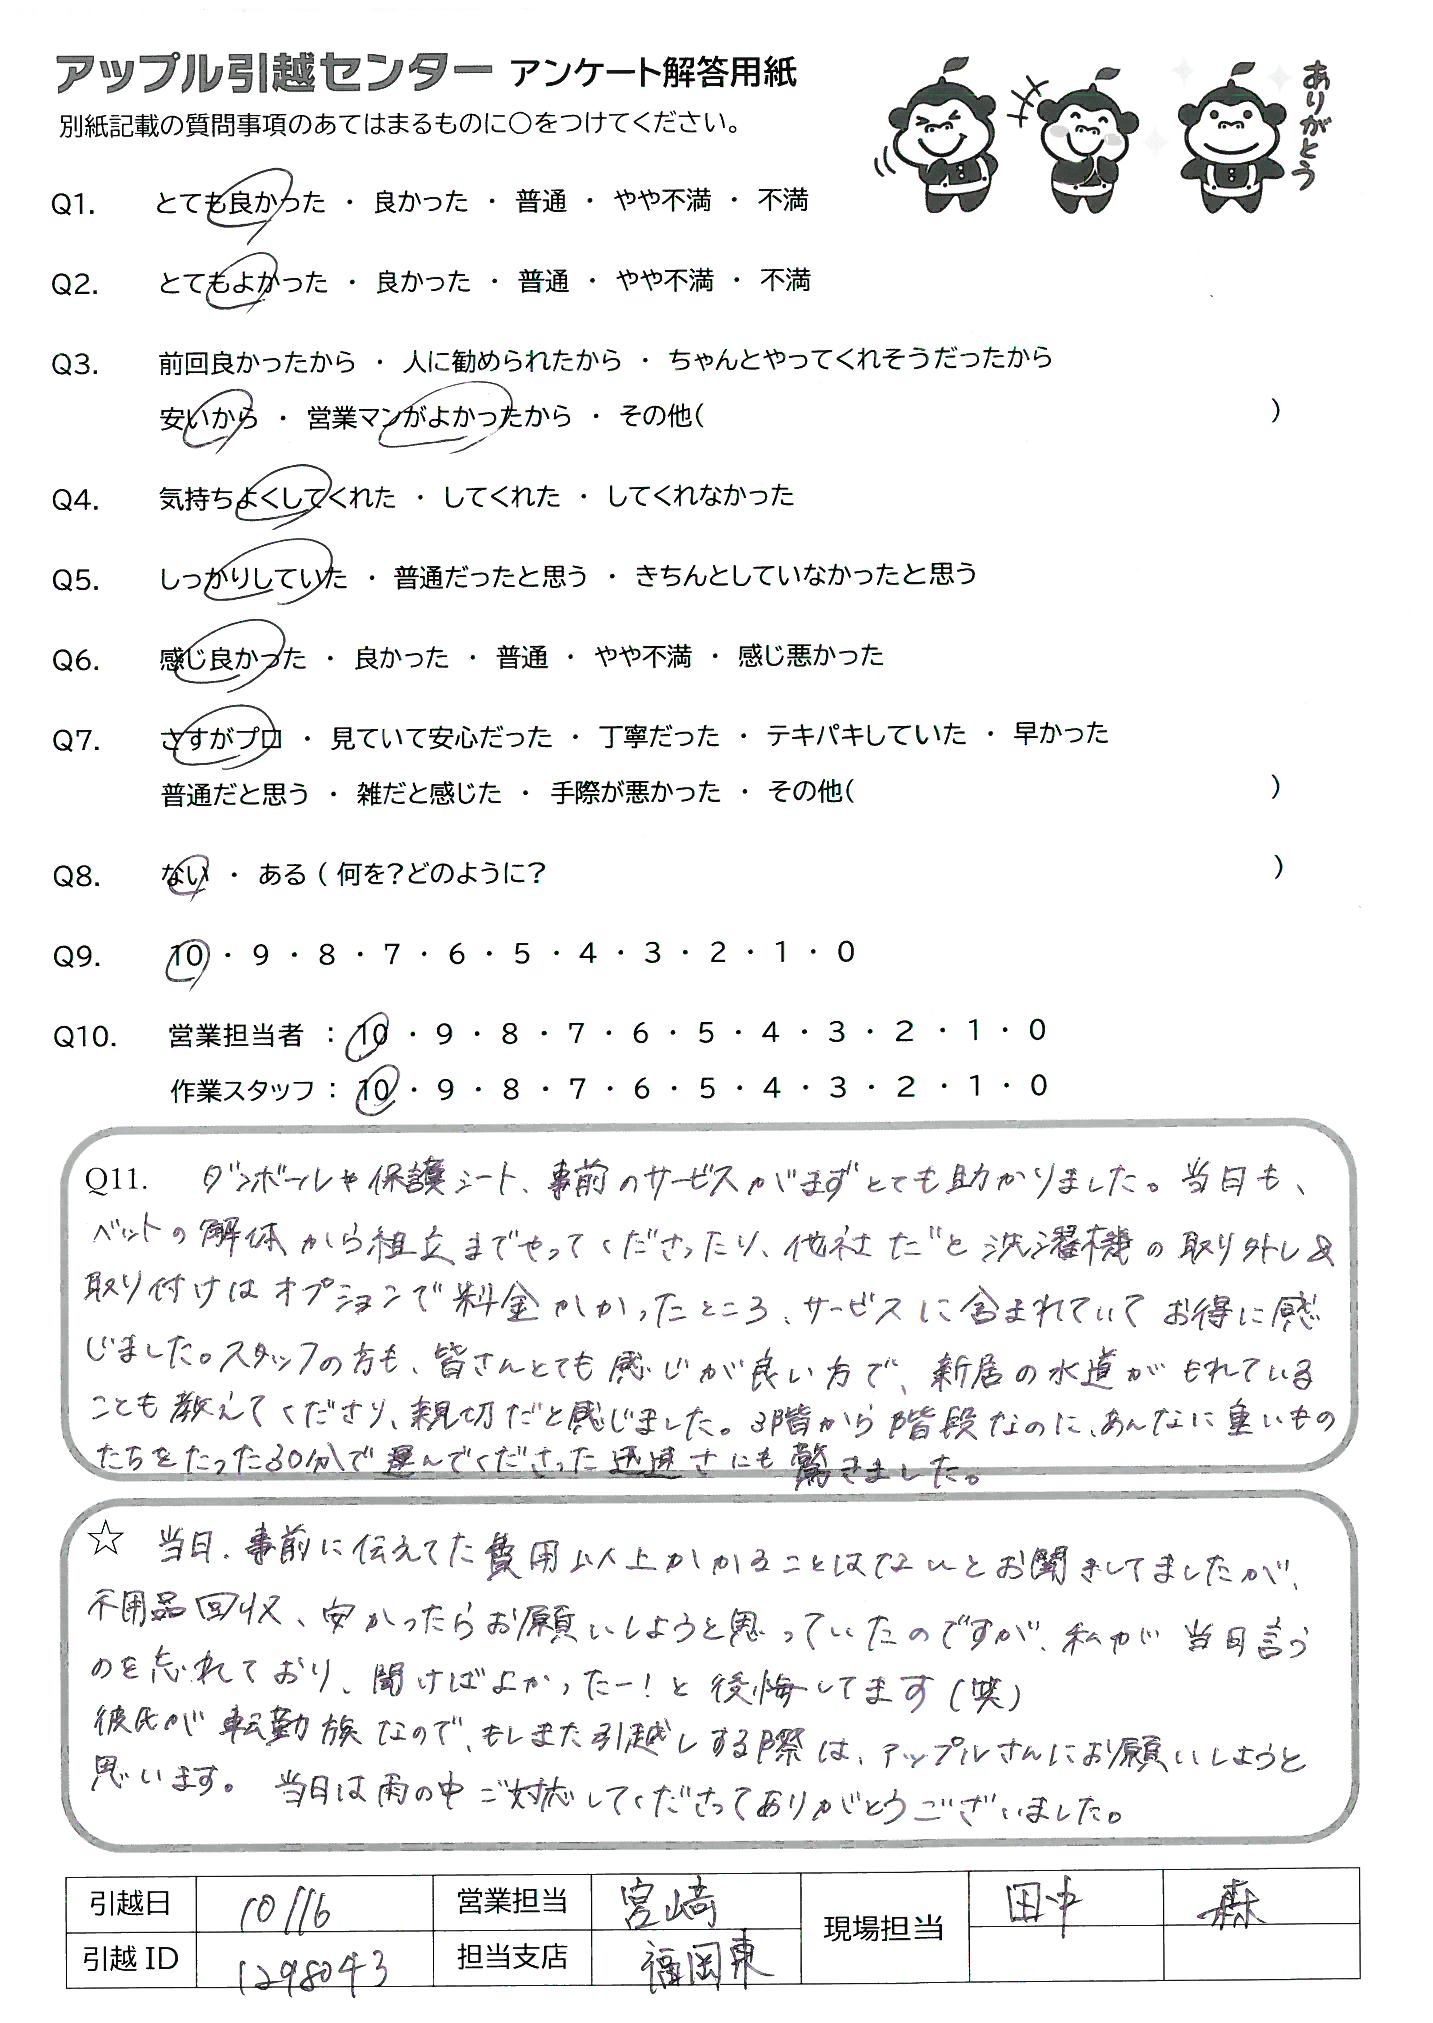 アップル引越センター アンケート解答用紙
ありがとう
別紙記載の質問事項のあてはまるものに○をつけてください。
Q1. とても良かった ・ 良かった ・ 普通 ・ やや不満 ・ 不満
Q2. とてもよかった ・ 良かった ・ 普通 ・ やや不満 ・ 不満
Q3. 前回良かったから ・ 人に勧められたから ・ ちゃんとやってくれそうだったから
安いから ・ 営業マンがよかったから ・ その他( )
Q4. 気持ちよくしてくれた ・ してくれた ・ してくれなかった
Q5. しっかりしていた ・ 普通だったと思う ・ きちんとしていなかったと思う
Q6. 感じ良かった ・ 良かった ・ 普通 ・ やや不満 ・ 感じ悪かった
Q7. さすがプロ ・ 見ていて安心だった ・ 丁寧だった ・ テキパキしていた ・ 早かった
普通だと思う ・ 雑だと感じた ・ 手際が悪かった ・ その他( )
Q8. ない ・ ある ( 何を?どのように? )
Q9. 10 ・ 9 ・ 8 ・ 7 ・ 6 ・ 5 ・ 4 ・ 3 ・ 2 ・ 1 ・ 0
Q10. 営業担当者 : 10 ・ 9 ・ 8 ・ 7 ・ 6 ・ 5 ・ 4 ・ 3 ・ 2 ・ 1 ・ 0
作業スタッフ : 10 ・ 9 ・ 8 ・ 7 ・ 6 ・ 5 ・ 4 ・ 3 ・ 2 ・ 1 ・ 0
Q11. ダンボールや保護シート、事前のサービスがまずとても助かりました。当日も、
ベットの解体から組立までやってくださったり、他社だと洗濯機の取り外し&
取り付けはオプションで料金かかったところ、サービスに含まれていてお得に感
じました。スタッフの方も、皆さんとても感じが良い方で、新居の水道がもれている
ことも教えてくださり、親切だと感じました。3階から階段なのに、あんなに重いもの
たちをたった30分で運んでくださった迅速さにも驚きました。
☆ 当日、事前に伝えてた費用以上かかることはないとお聞きしてましたが、
不用品回収、安かったらお願いしようと思っていたのですが、私が当日言う
のを忘れており、聞けばよかったー!と後悔してます(笑)
彼氏が転勤族なので、もしまた引越しする際は、アップルさんにお願いしようと
思います。 当日は雨の中ご対応してくださってありがとうございました。
引越日 10/16 営業担当 宮﨑 現場担当 田中 森
引越 ID 1298043 担当支店 福岡東